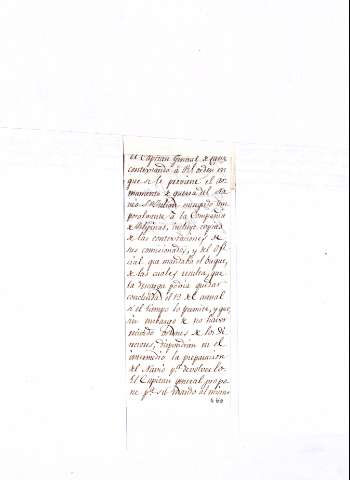 El Capitan General de
contextando á Rl orden en
que se le previene el ar-
mamento de guerra del Na-
vio Sn Julian ocupado tem-
poralmente á la Compañia
de Filipinas, incluye copias
de las contextaciones de
sus comisionados, y del ofi-
cial que mandaba el buque,
de las cuales resulta, que
la descarga podia quedar
concluida el 12 del actual
si el tiempo lo permite, y que,
sin embargo de no haver
recivido ordenes de los Di-
rectores, dispondran en el
intermedio la preparacion
del Navio pa devolverlo.
El Capitan general propo-
ne pa su mando al mismo